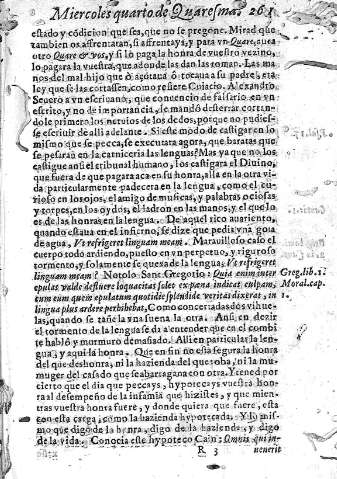 Miercoles quarto de Quaresma. 261
estado y cõdicion que sea, que no se pregone. Mirad que
tambien os affrentatan, si affrentays, y para vn Quare, aura
otro Quare & vos, y si lo paga la honra de vuestro vezino,
lo pagara la vuestra, que adonde las dan las toman. Las ma
nos del mal hijo que ò açotaua ò tocaua a su padre, era
ley que se las cortassen, como refiere Cuiacio. Alexandro
Seuero a vn escriuano, que conuencio de falsario en vn
escrito, y no de importancia, le mandò desterrar cortan-
dole primero los neruios de los dedos, porque no pudies-
se escriuir de alli adelante. Si este modo de castigar en lo
mismo que se pecca, se executara agora, que baratas que
se pesaran en la carniceria las lenguas? Mas ya que no las
castigue aqui el tribunal humano, los castigara el Diuino,
que fuera de que pagara aca en su honra, alla en la otra vi-
da particularmente padecera en la lengua, como el cu-
rioso en los ojos, el amigo de musicas, y palabras ociosas
y torpes, en los oydos, el ladron en las manos, y el que lo
es de las honras en la lengua. De aquel rico auariento,
quando estaua en el infierno, se dize que pedia vna gota
de agua, Vt refrigeret linguam meam. Marauilloso caso el
cuerpo todo ardiendo, puesto en vn perpetuo, y riguroso
tormento, y solamente se quexa de la lengua? Vt refrigeret
linguam meam? Notolo Sant Gregorio: Quia enim inter
epulas valde defluere loquacitas solet ex pœna indicat culpam,
tum eum quem epulatum quotidie splendide veritas dixerat, in
lingua plus ardere perhibebat, Como concertadas dos vihue-
las, quando se tañe la vna suena la otra. Ansi en dezir
el tormento de la lengua se da a entender que en el combi
te hablò y murmurò demasiado. Alli en particular la len-
gua, y aqui la honra. Que en fin no esta segura la honra
del que deshonra, ni la hazienda del que roba, ni la mu-
muger del casado que se abarragana con otra. Y tened por
cierto que el dia que peccays, hypotecays vuestra hon-
ra al desempeño de la infamia que hizistes, y que mien-
tras vuestra honra fuere, y donde quiera que fuere, esta
con esta carga, como la hazienda hypotecada. Y lo mis-
mo que digo de la honra, digo de la hazienda, y digo
de la vida. Conocia este hypoteco Cain: Omnis qui in-
R 3 uenerit
Greg. lib. 1.
Moral. cap.
1.